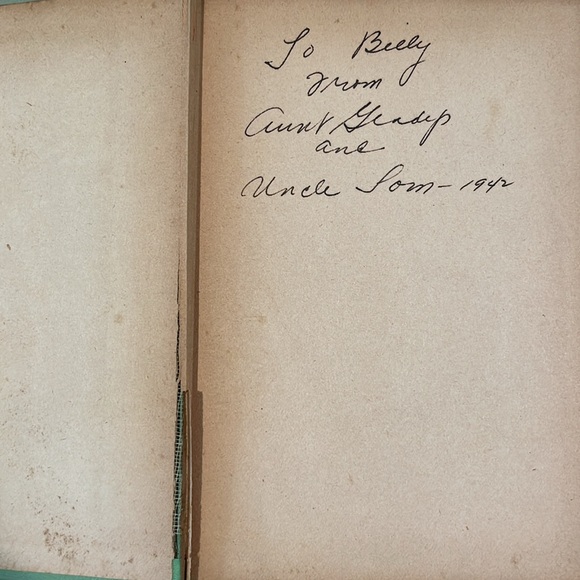 To Billy
From
Aunt Gladys
and
Uncle Tom - 1942